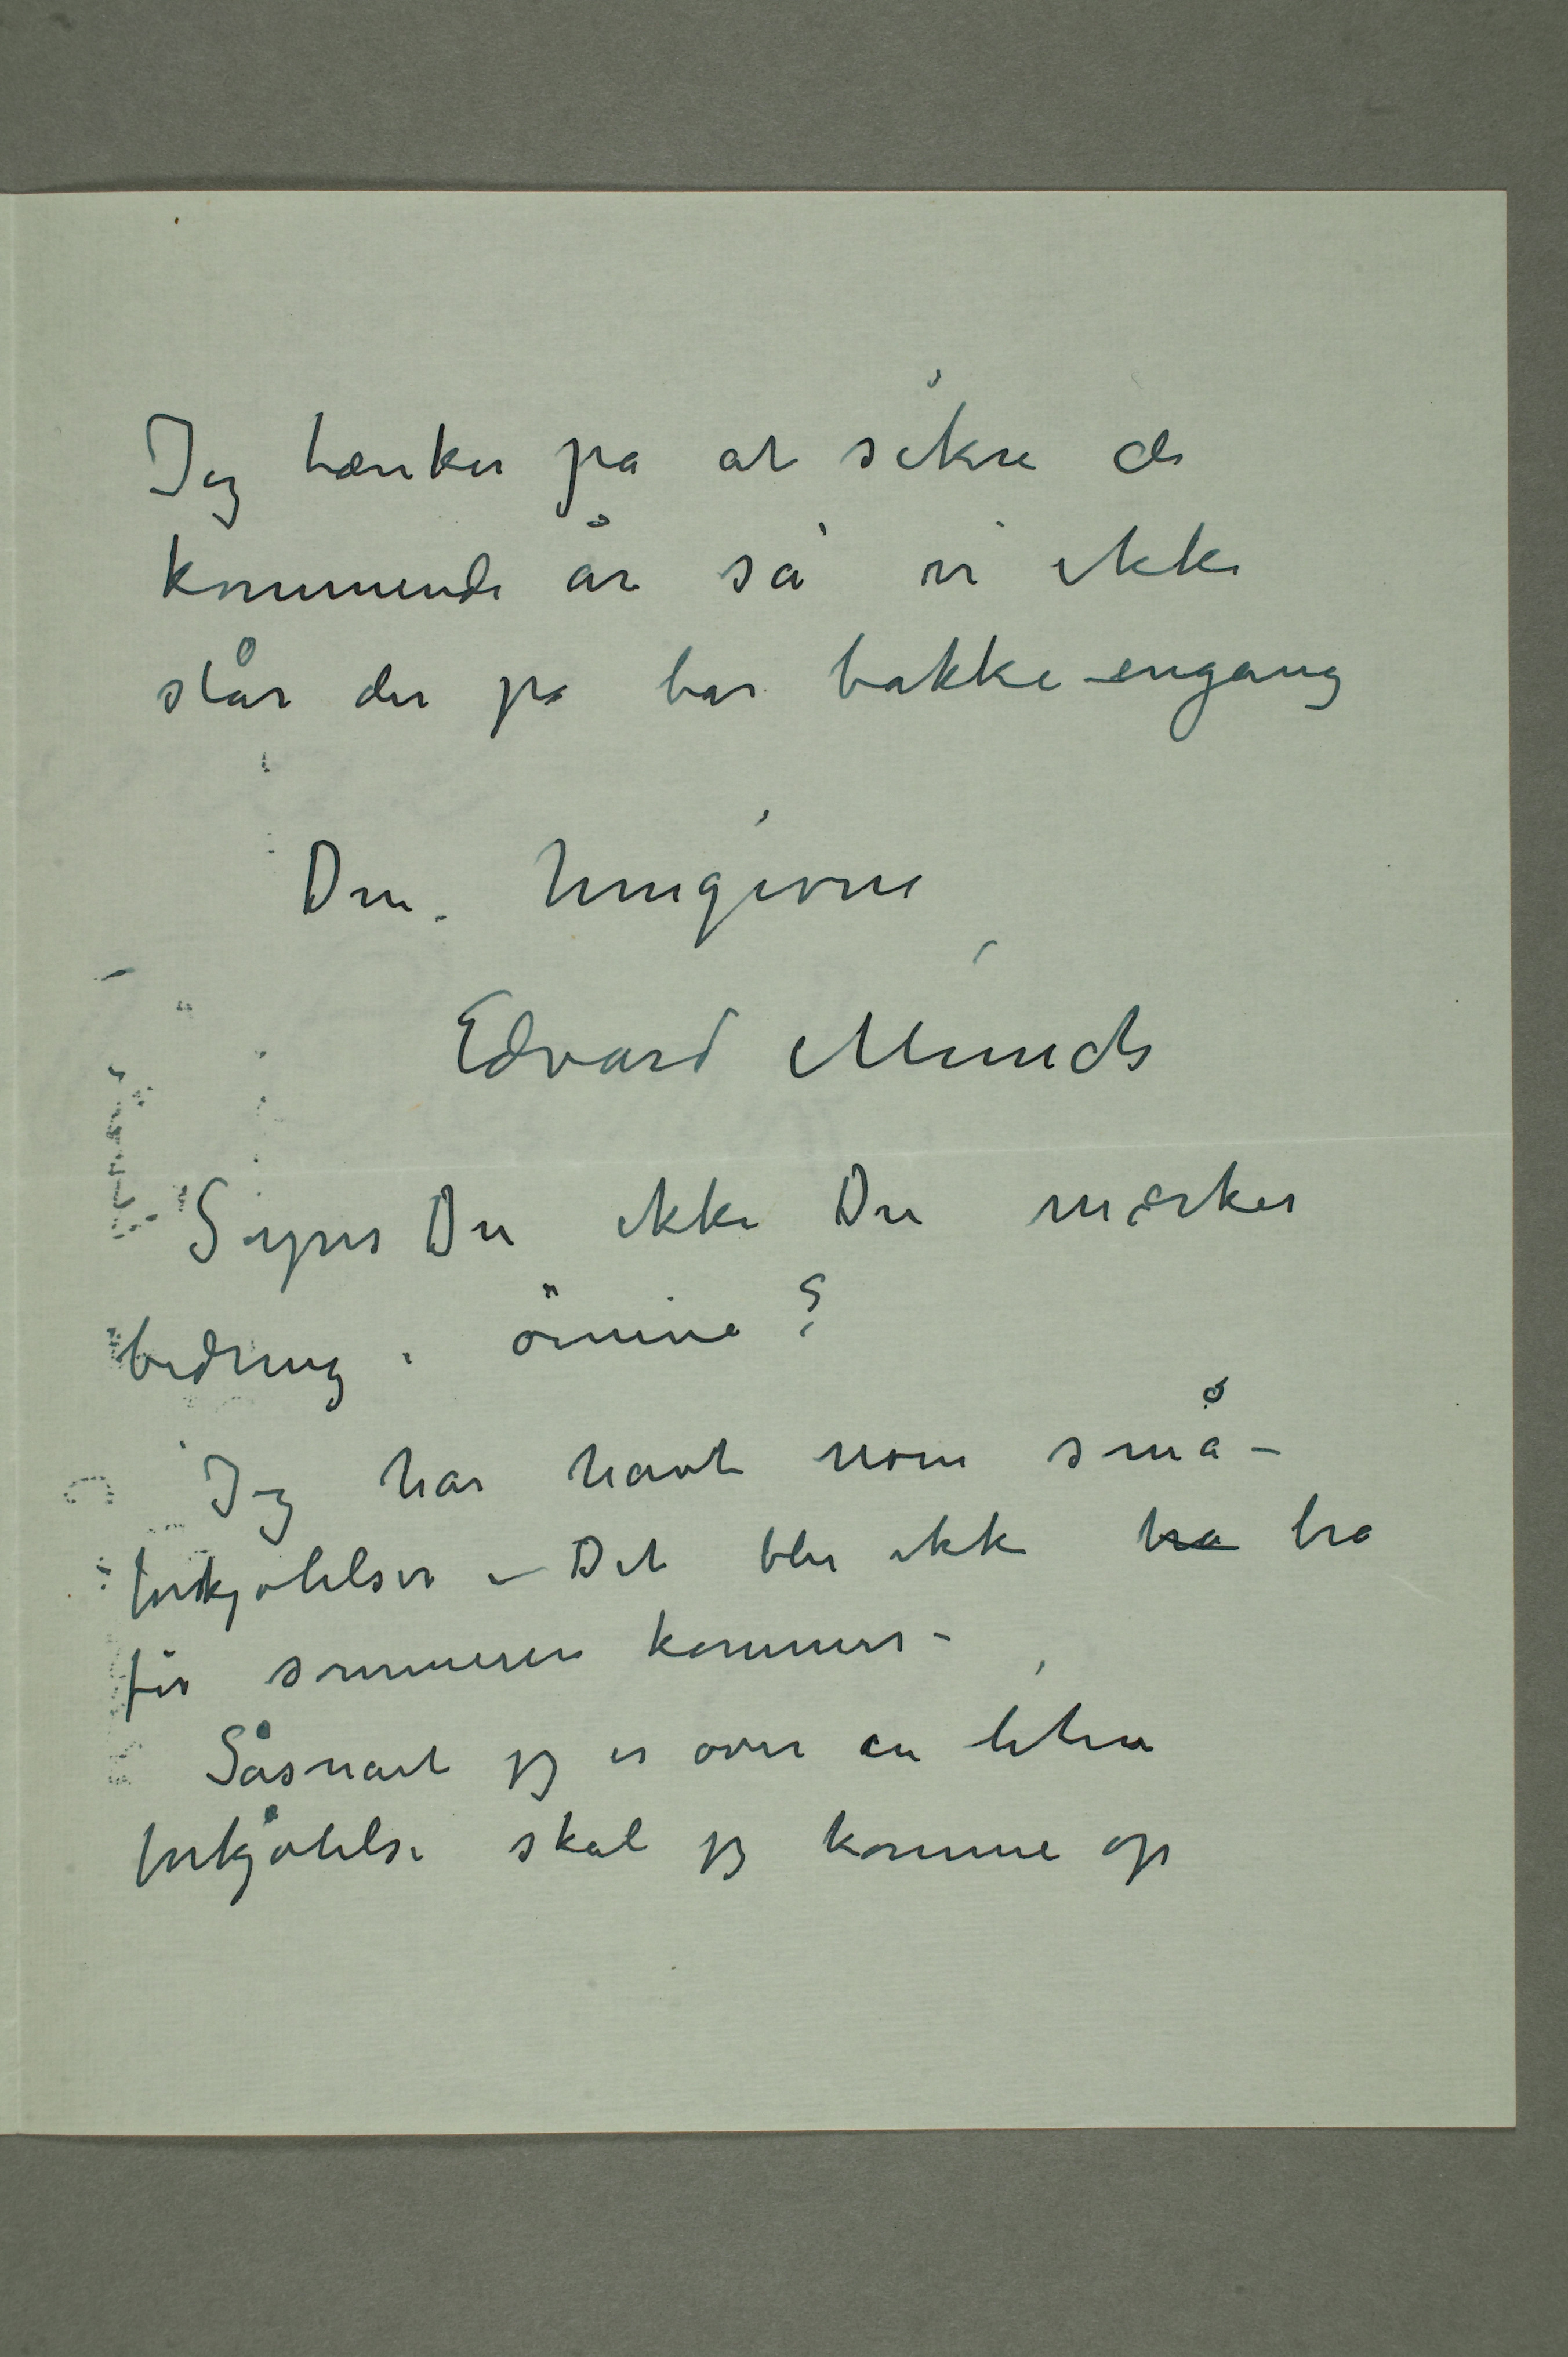 Jeg tænker på at sikre de
kommende år så vi ikke
står der på bar bakke engang
Din hengivne
Edvard Munch
Synes Du ikke Du mærker
bedring i öinene?
Jeg har havt noen små–
forkjølelser – Det blir ikke bra bra
før sommeren kommer –
Såsnart jeg er over en liten
forkjølelse skal jeg komme op